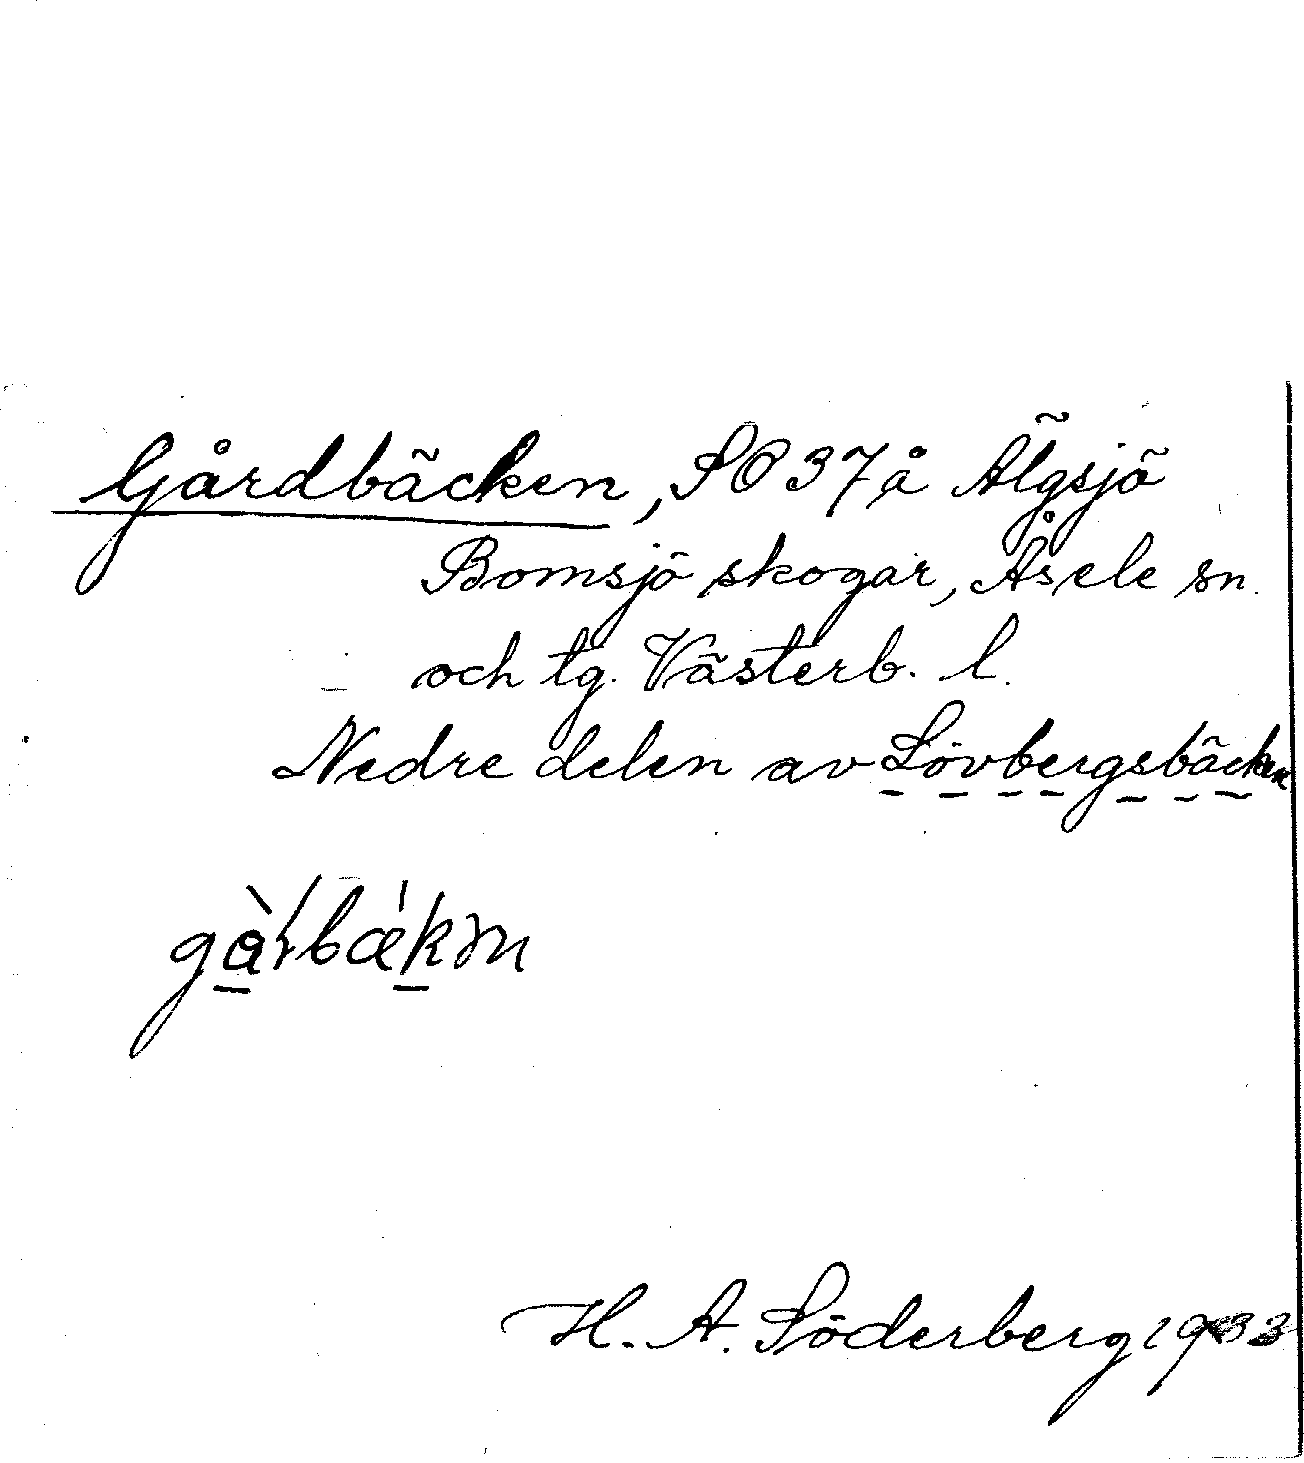 Gårdbäcken, SO 37 å Älgsjö
Bomsjö skogar, Åsele sn.
och tg. Västerb. l.
Nedre delen av Lövbergsbäcken
H. A. Söderberg 1933